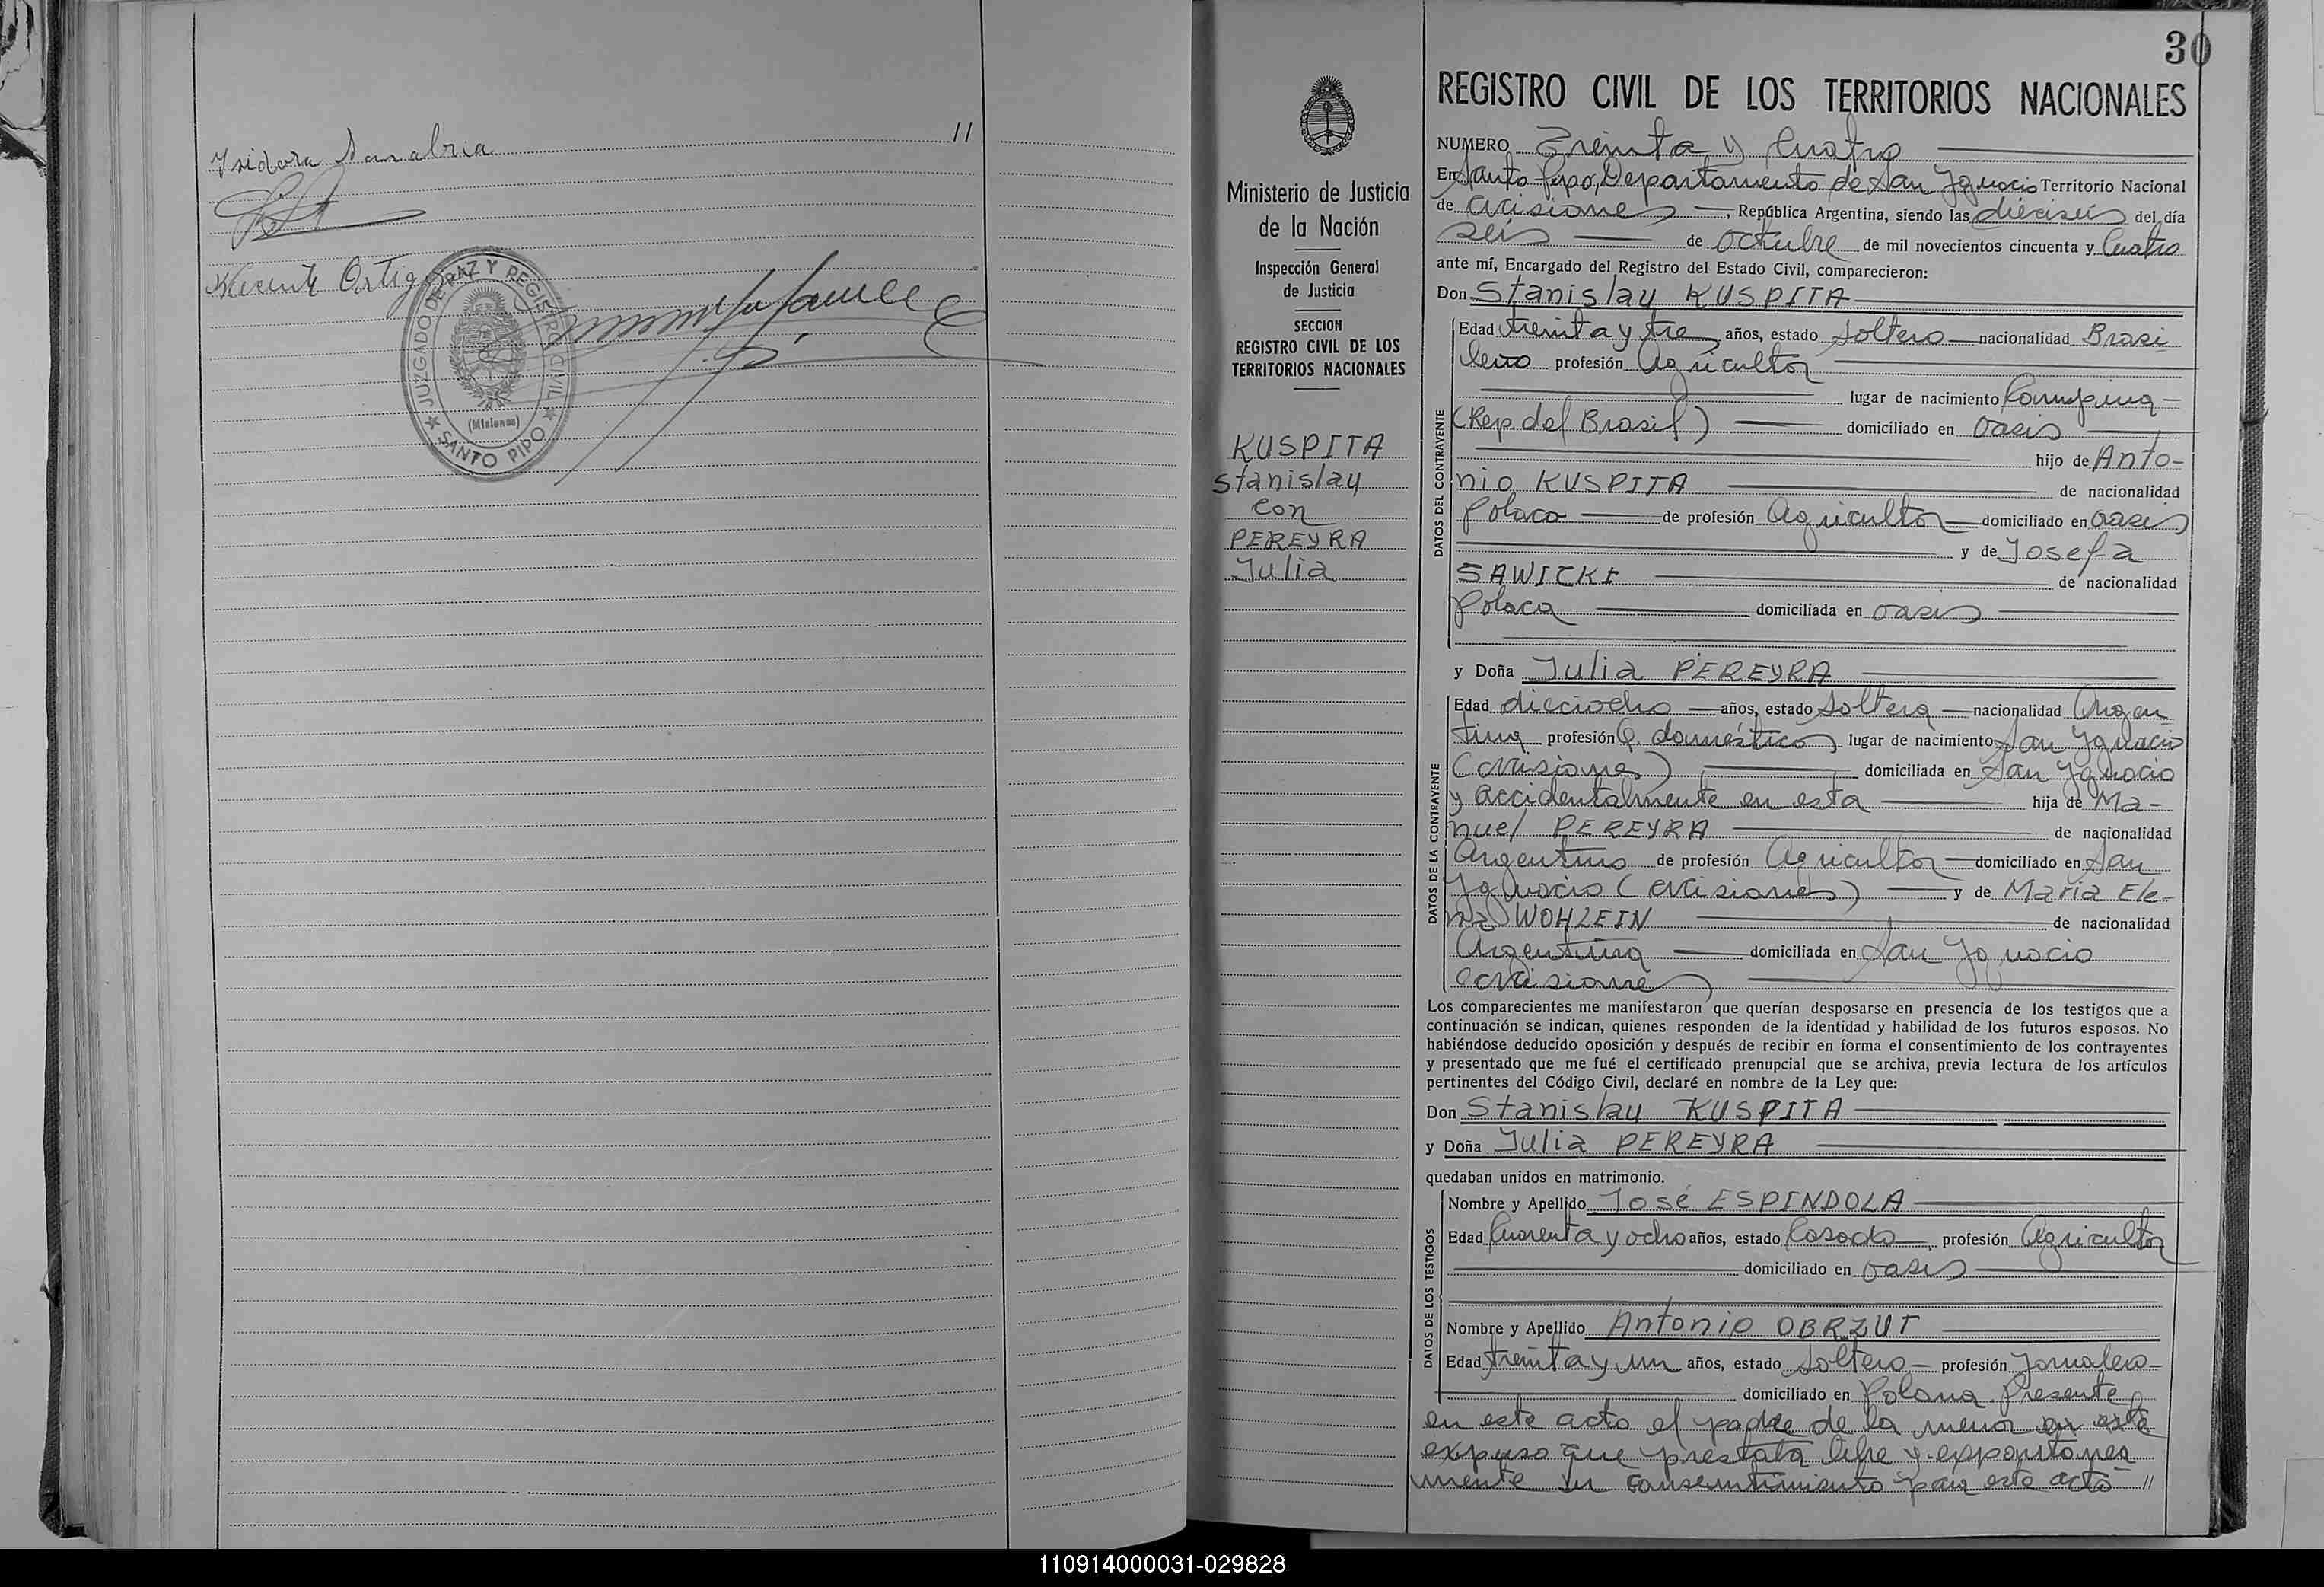 Isidora Sanabria //
Vicente Ortig
JUZGADO DE PAZ Y REGISTRO CIVIL
(Misiones)
★ SANTO PIPO ★
30
Ministerio de Justicia
de la Nación
Inspección General
de Justicia
SECCION
REGISTRO CIVIL DE LOS
TERRITORIOS NACIONALES
KUSPITA
Stanislay
Con
PEREYRA
Julia
REGISTRO CIVIL DE LOS TERRITORIOS NACIONALES
NUMERO Treinta y Cuatro
En Santo Pipo, Departamento de San Ignacio Territorio Nacional
de Misiones, República Argentina, siendo las dieciseis del día
seis de octubre de mil novecientos cincuenta y Cuatro
ante mí, Encargado del Registro del Estado Civil, comparecieron:
Don Stanislay KUSPITA
Edad treinta y tres años, estado soltero nacionalidad Brasi
leño profesión Agricultor
lugar de nacimiento Campina
(Rep. del Brasil) domiciliado en Oasis
hijo de Anto-
nio KUSPITA de nacionalidad
Polaco de profesión Agricultor domiciliado en Oasis
y de Josefa
SAWICKI de nacionalidad
Polaca domiciliada en Oasis
DATOS DEL CONTRAYENTE
y Doña Julia PEREYRA
Edad dieciocho años, estado Soltera nacionalidad Argen
tina profesión Q. domésticos lugar de nacimiento San Ignacio
(Misiones) domiciliada en San Ignacio
y accidentalmente en esta hija de Ma-
nuel PEREYRA de nacionalidad
Argentino de profesión Agricultor domiciliado en San
Ignacio (Misiones) y de María Ele-
na WOHLEIN de nacionalidad
Argentina domiciliada en San Ignacio
Misiones
DATOS DE LA CONTRAYENTE
Los comparecientes me manifestaron que querían desposarse en presencia de los testigos que a
continuación se indican, quienes responden de la identidad y habilidad de los futuros esposos. No
habiéndose deducido oposición y después de recibir en forma el consentimiento de los contrayentes
y presentado que me fué el certificado prenupcial que se archiva, previa lectura de los artículos
pertinentes del Código Civil, declaré en nombre de la Ley que:
Don Stanislay KUSPITA
y Doña Julia PEREYRA
quedaban unidos en matrimonio.
Nombre y Apellido José ESPINDOLA
Edad Cuarenta y ocho años, estado Casado profesión Agricultor
domiciliado en Oasis
Nombre y Apellido Antonio OBRZUT
Edad treinta y un años, estado soltero profesión Jornalero
domiciliado en Polana. Presente
DATOS DE LOS TESTIGOS
en este acto el padre de la menor en este
expuso que prestaba libre y expontanea
mente su consentimiento para este acto //
110914000031-029828